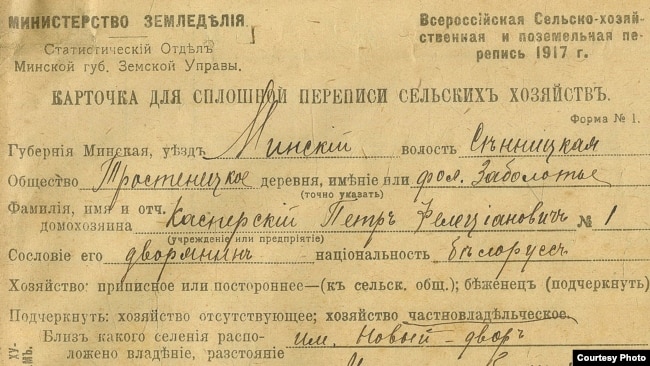 МИНИСТЕРСТВО ЗЕМЛЕДѢЛІЯ.
Статистическій Отдѣлъ
Минской губ. Земской Управы.
Всероссійская Сельско-хозяй-
ственная и поземельная пе-
репись 1917 г.
КАРТОЧКА ДЛЯ СПЛОШНОЙ ПЕРЕПИСИ СЕЛЬСКИХЪ ХОЗЯЙСТВЪ.
Форма № 1.
Губернія Минская, уѣздъ Минскій волость Сѣнницкая
Общество Тростенецкое деревня, имѣніе или фол. Заболотье
(точно указать)
Фамилія, имя и отч. домохозяина Касперскій Петръ Фелеціановичъ № 1
(учрежденіе или предпріятіе)
Сословіе его дворянинъ національность бѣлоруссъ
Хозяйство: приписное или постороннее—(къ сельск. общ.); бѣженец (подчеркнуть)
Подчеркнуть: хозяйство отсутствующее; хозяйство частновладѣльческое.
Близ какого селенія распо- им. Новый-дворъ
ложено владѣніе, разстояніе
ХУ-
ТМЪ.
Courtesy Photo